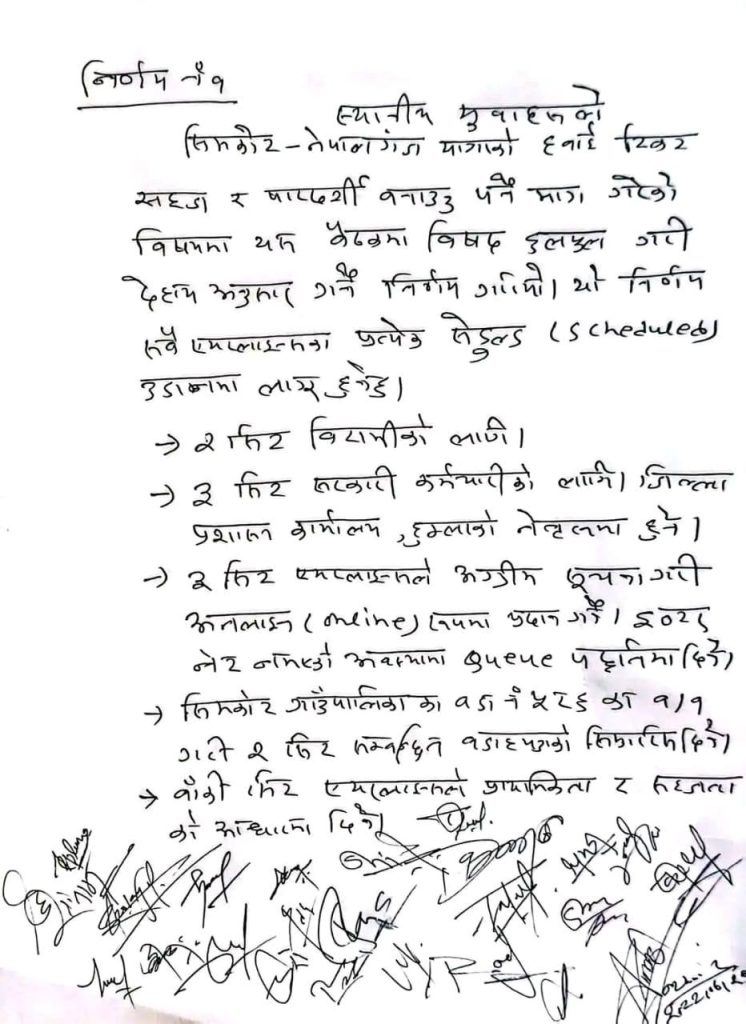 निर्णय नं १
स्थानीय युवाहरुको
सिमकोट – नेपालगंज यात्राको हवाई टिकट
सहज र पारदर्शी बनाउनु पर्ने माग गरेको
विषयमा यस बैठकमा विषद छलफल गरी
देहाय अनुसार गर्ने निर्णय गरियो। यो निर्णय
सबै एयरलाइन्सका प्रत्येक सेडुल्ड (Scheduled)
उडानमा लागू हुनेछ।
→ २ सिट विरामीको लागी।
→ ३ सिट सरकारी कर्मचारीको लागि। जिल्ला
प्रशासन कार्यालय, हुम्लाको नेतृत्वमा हुने।
→ ३ सिट एयरलाइन्सले अग्रीम सूचना गरी
अनलाइन (online) रुपमा प्रदान गर्ने।
नेट नभएको अवस्थामा Queue पद्धतिमा दिने।
→ सिमकोट गाउँपालिका का वडा नं ५ र ६ का १/१
गरी २ सिट सम्बन्धित वडाध्यक्षको सिफारिसमा दिने।
→ बाँकी सिट एयरलाइन्सले प्राथमिकता र सहजता
को आधारमा दिने।